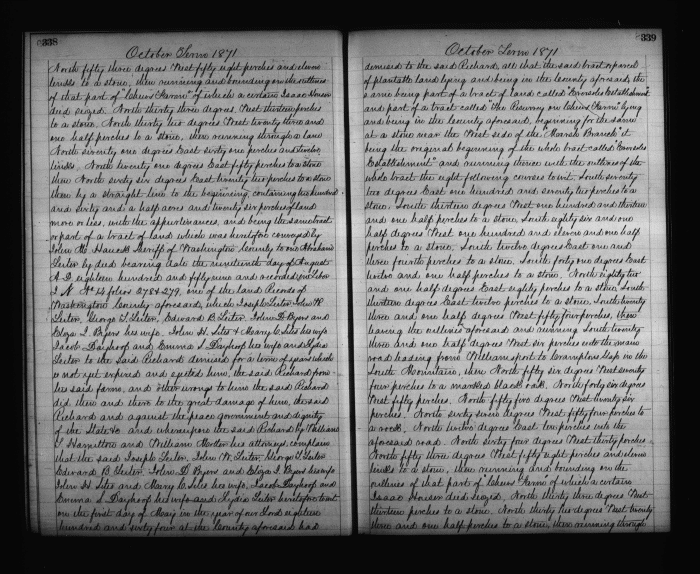 338
October Term 1871
North fifty three degrees West fifty eight perches and eleven
links to a stone, then running and bounding on the outlines
of that part of "Ishies Farm" of which a certain Isaac Houser
died seized. North thirty three degrees West thirteen perches
to a stone. North thirty two degrees West twenty three and
one half perches to a stone, then running through a lane
North seventy one degrees East sixty one perches and twelve
links. North twenty one degrees East fifty perches to a stone
then North sixty six degrees East twenty two perches to a stone
then by a straight line to the beginning, containing two hundred
and sixty and a half acres and twenty six perches of land
more or less, with the appurtenances, and being the same tract
or part of a tract of land which was heretofore conveyed by
John Sheriff of Washington County to one Abraham
Leiter by deed bearing date the nineteenth day of August
A.D. eighteen hundred and fifty nine and recorded in Liber
I N No 14 folios 278 & 279, one of the land Records of
Washington County aforesaid, which Joseph Leiter John W.
Leiter, George T. Leiter, Edward B. Leiter, John D Byers and
Eliza I. Byers his wife, John H. Sites & Mary C. Sites his wife
Jacob Dayhoof and Emma S. Dayhoof his wife and Lydia
Leiter to the said Richard demised for a term of years which
is not yet expired and ejected him, the said Richard from
his said farm, and other wrongs to him the said Richard
did then and there to the great damage of him, the said
Richard and against the peace government and dignity
of the State &c. and whereupon the said Richard by William
T. Hamilton and William Motter his attorneys, complain
that the said Joseph Leiter, John W. Leiter, George T. Leiter
Edward B. Leiter, John D. Byers and Eliza I. Byers his wife
John H. Sites and Mary C. Sites his wife, Jacob Dayhoof and
Emma S. Dayhoof his wife and Lydia Leiter heretofore to wit
on the first day of May in the year of our Lord eighteen
hundred and sixty four at the County aforesaid had
339
October Term 1871
demised to the said Richard, all that the said tract or parcel
of plantable land lying and being in the County aforesaid, the
same being part of a tract of land called Establishment
and part of a tract called "The Resurvey on Ishies Farm" lying
and being in the County aforesaid, beginning for the same
at a stone near the West side of the "Marsh Branch" it
being the original beginning of the whole tract called
Establishment" and running thence with the outlines of the
whole tract the eight following courses to wit, South seventy
two degrees East one hundred and seventy two perches to a
stone. South thirteen degrees West one hundred and thirteen
and one half perches to a stone, South eighty six and one
half degrees West one hundred and eleven and one half
perches to a stone. South twelve degrees East one and
three fourths perches to a stone, South forty one degrees East
twelve and one half perches to a stone. North eighty two
and one half degrees East eighty perches to a stone, South
thirteen degrees East twelve perches to a stone, South twenty
three and one half degrees West fifty four perches, then
leaving the outlines aforesaid and running South twenty
three and one half degrees West six perches into the main
road leading from Williamsport to Cramptons Gap in the
South Mountain, then North fifty six degrees West seventy
four perches to a marked black oak. North forty six degrees
West fifty perches. North fifty two degrees West twenty six
perches. North sixty seven degrees West fifty four perches to
a rock, North twelve degrees East ten perches into the
aforesaid road. North sixty four degrees West thirty perches
North fifty three degrees West fifty eight perches and eleven
links to a stone, then running and bounding on the
outlines of that part of "Ishies Farm" of which a certain
Isaac Houser died seized, North thirty three degrees West
thirteen perches to a stone. North thirty two degrees West twenty
three and one half perches to a stone, then running through